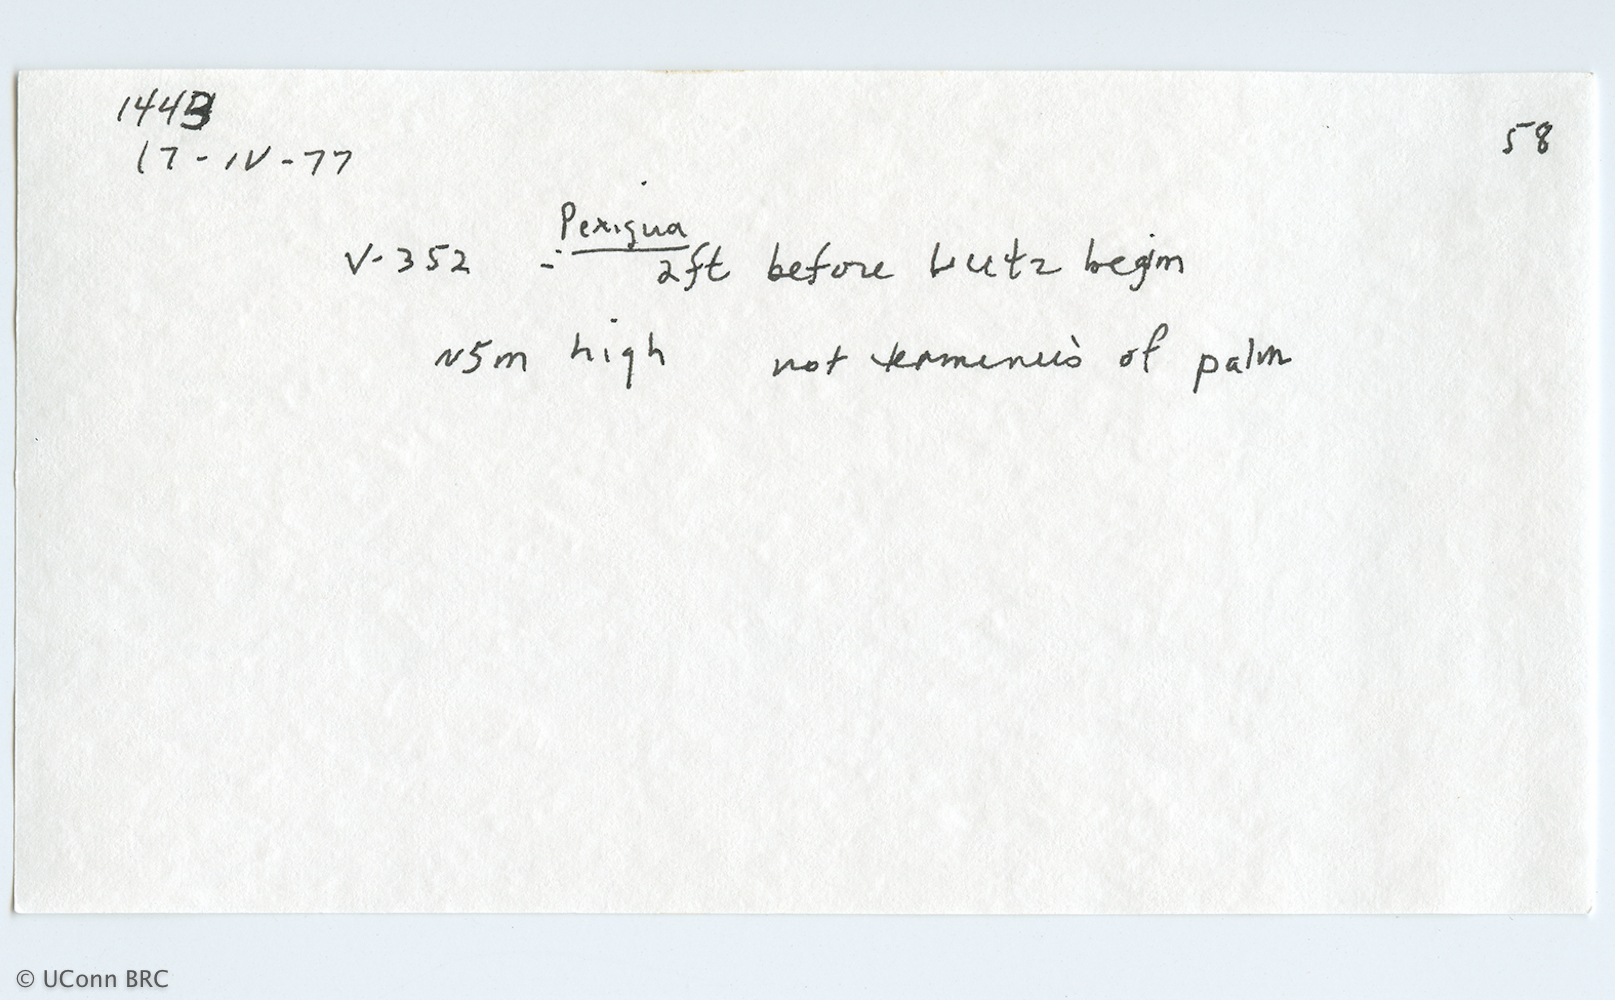 1443
17-IV-77
58
Pexigua
V-352 - 2ft before Lutz begin
~5m high not terminus of palm
© UConn BRC